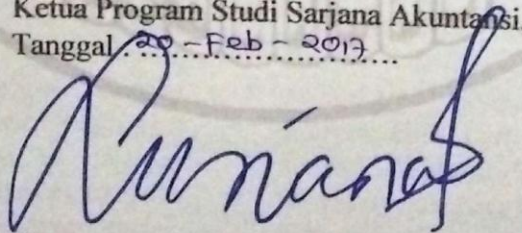 Ketua Program Studi Sarjana Akuntansi
Tanggal : 20 - Feb - 2017